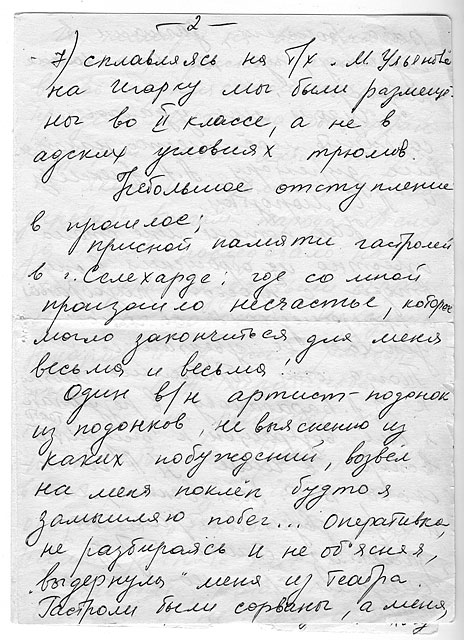 — 2 —
7) сплавляясь на т/х "М. Ульянова
на Игарку мы были размеще-
ны во II классе, а не в
адских условиях трюмов.
Небольшое отступление
в прошлое;
присной памяти гастролей
в г. Селехарде; где со мной
произошло несчастье, которое
могло закончиться для меня
весьма и весьма!
Один в/н артист-подонок
из подонков, не выяснено из
каких побуждений, возвёл
на меня поклёп будто я
замышляю побег... Оперативка,
не разбираясь и не об'ясняя,
"выдернула" меня из театра.
Гастроли были сорваны, а меня,